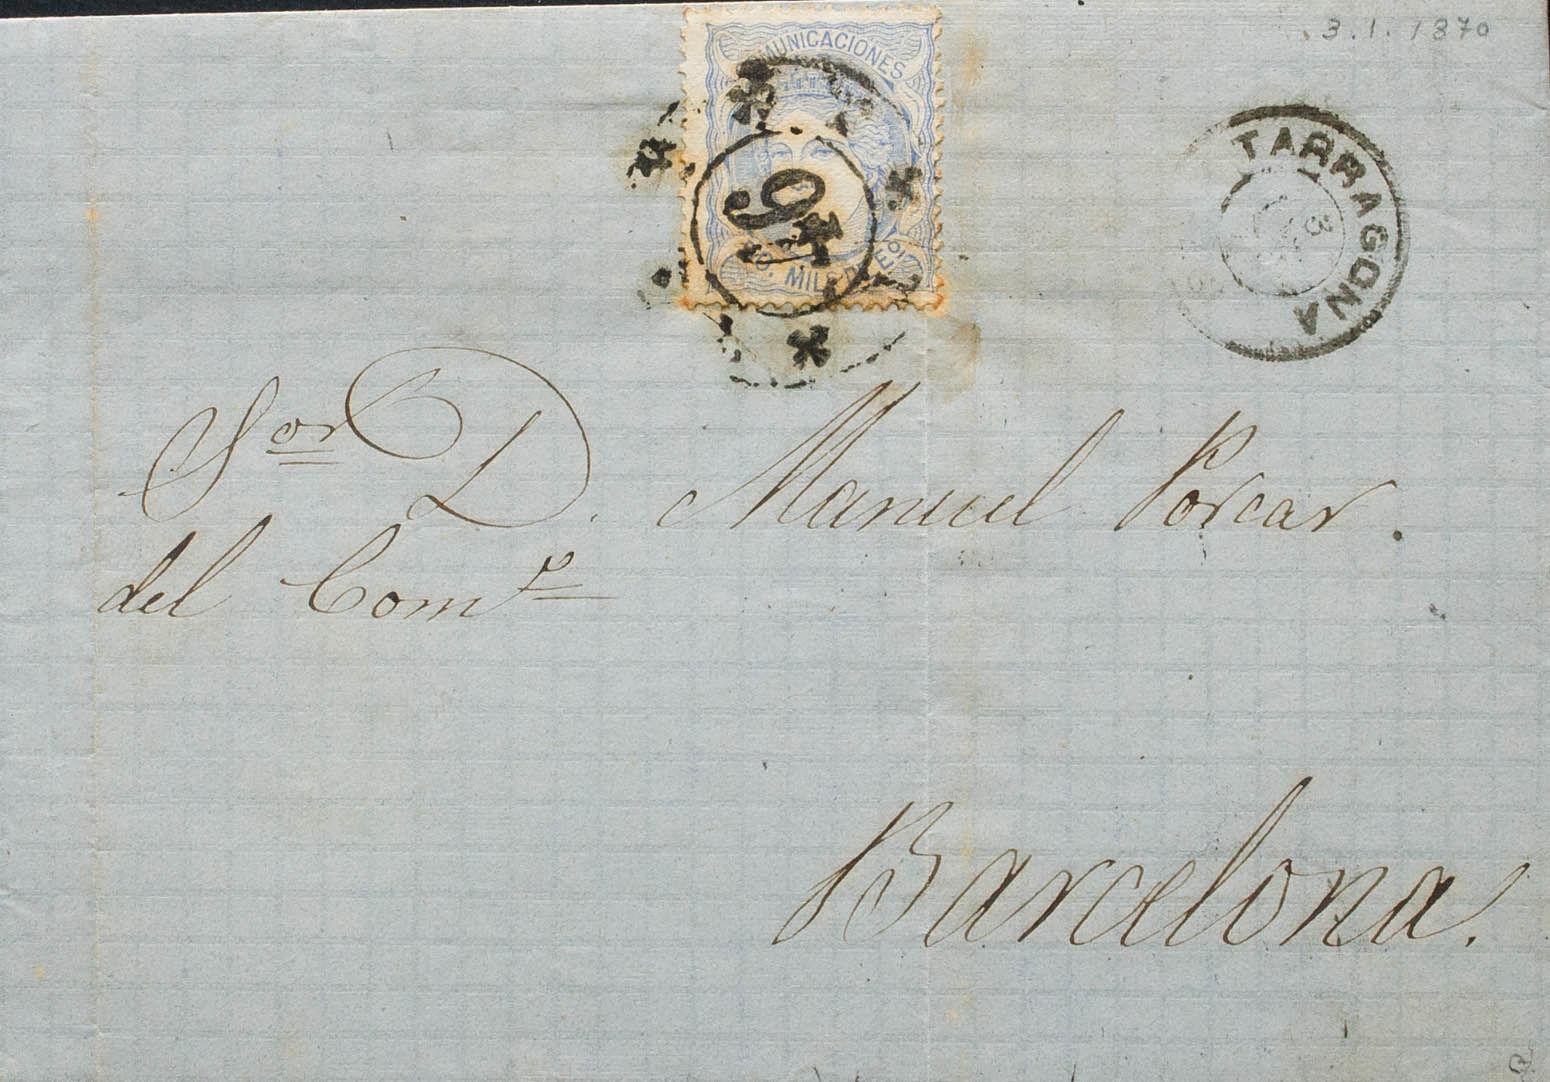 3.1.1870
COMUNICACIONES
TARRAGONA
3
Sor D. Manuel Porcar.
del Como
Barcelona.